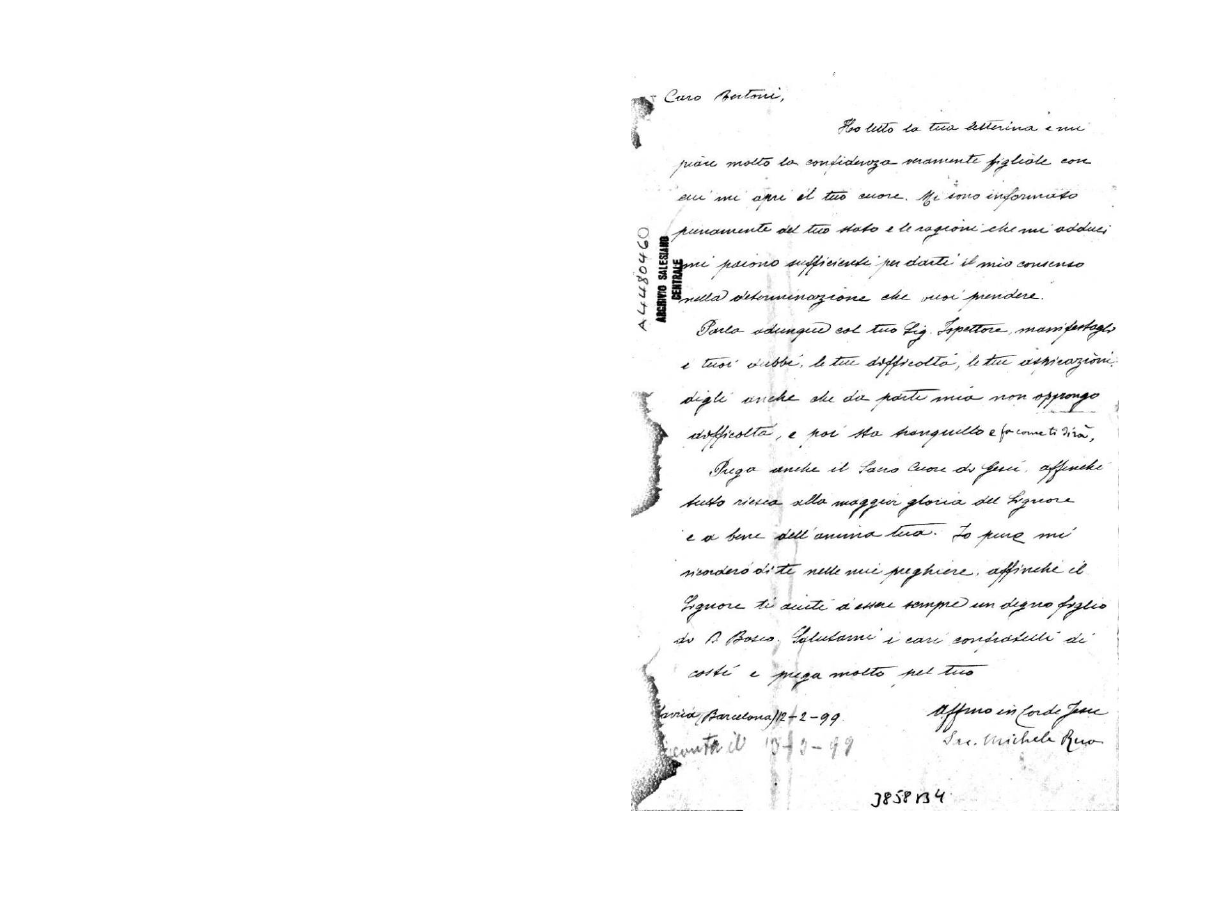 Caro Bertoni,
Ho letto la tua letterina e mi
piace molto la confidenza veramente figliale con
cui mi apri il tuo cuore. Mi sono informato
pienamente del tuo stato e le ragioni che mi adduci
mi paiono sufficienti per darti il mio consenso
nella determinazione che vuoi prendere.
Parla adunque col tuo Sig. Ispettore, manifestagli
i tuoi dubbi, le tue difficoltà, le tue aspirazioni.
digli anche che da parte mia non oppongo
difficoltà, e poi sta tranquillo e fa come ti dirà,
Prega anche il Sacro Cuore di Gesù, affinché
tutto riesca alla maggior gloria del Signore
e a bene dell'anima tua. Io pure mi
ricorderò di te nelle mie preghiere, affinché il
Signore ti aiuti a essere sempre un degno figlio
di D Bosco. Salutami i cari confratelli di
costì e prega molto pel tuo
(Barcelona) 12-2-99
Affmo in Corde Jesu
Sac. Michele Rua
il 13-2-99
3858 B4
A4480460
ARCHIVIO SALESIANO
CENTRALE